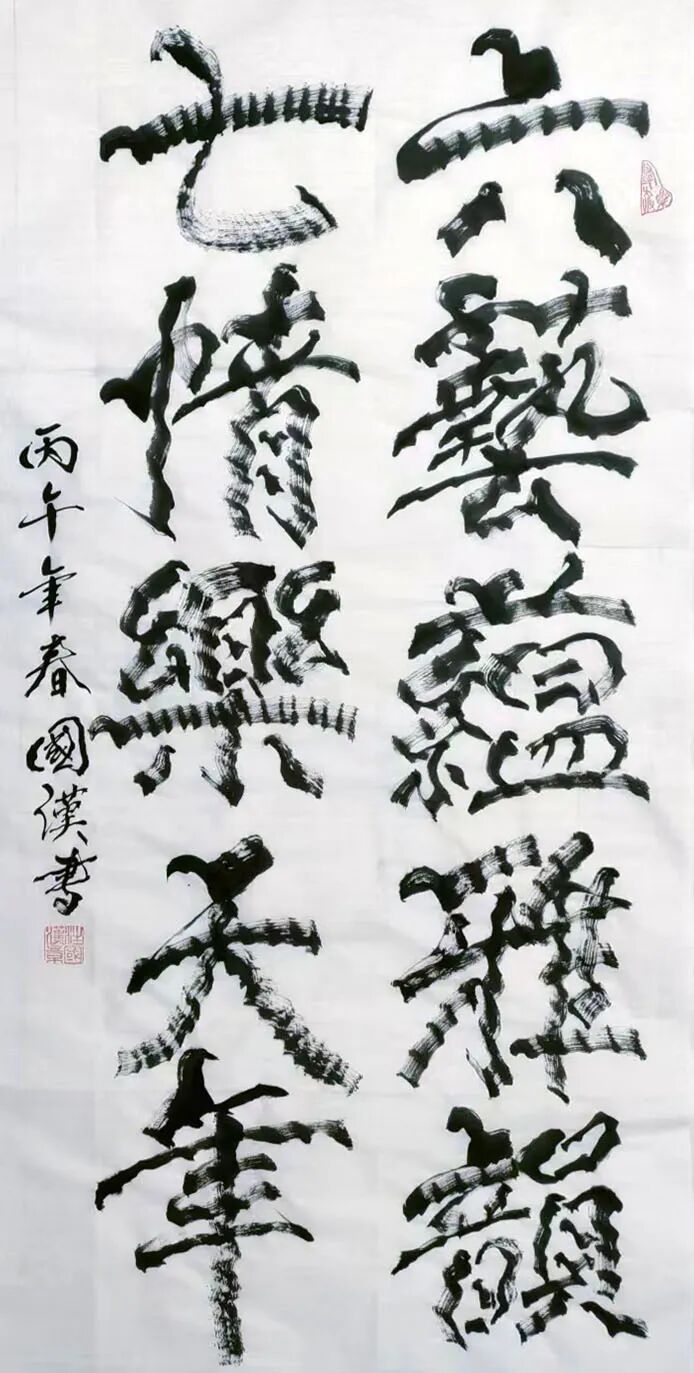 六藝蘊雅韻
七情樂天年
丙午年春國漢書